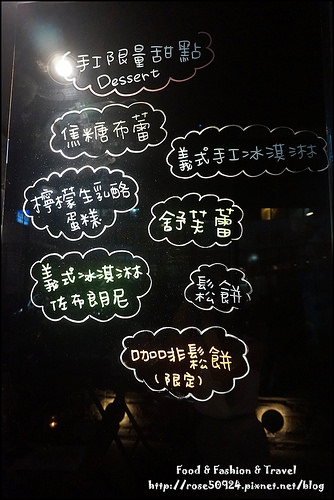 手工限量甜點
Dessert
焦糖布蕾
義式手工冰淇淋
檸檬生乳酪
蛋糕
舒芙蕾
義式冰淇淋
佐布朗尼
鬆餅
咖啡鬆餅
(限定)
Food & Fashion & Travel
http://rose50924.pixnet.net/blog